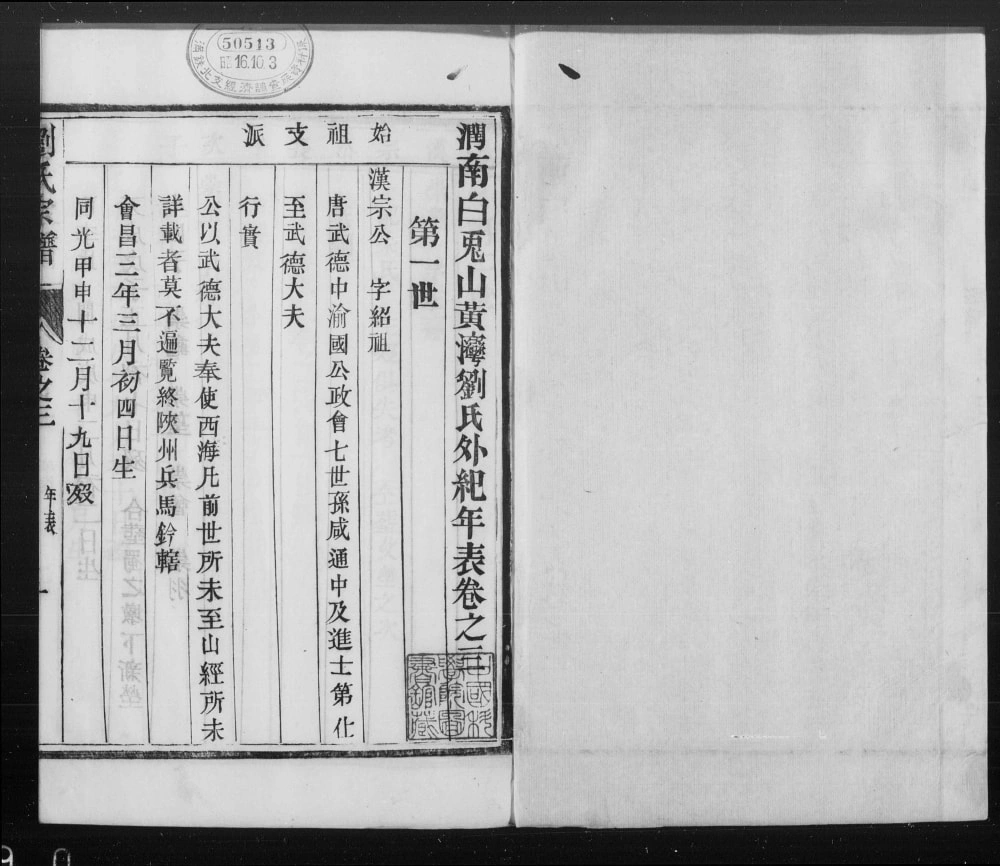 潤南白兎山黃灣劉氏外紀年表卷之三
第一世
始祖支派
漢宗公　字紹祖
唐武德中渝國公政會七世孫咸通中及進士第仕
至武德大夫
行實
公以武德大夫奉使西海凡前世所未至山經所未
詳載者莫不遍覽終陜州兵馬鈐轄
會昌三年三月初四日生
同光甲申十二月十九日歿
劉氏宗譜
卷之三
年表
一
50513
16.10.3
中國科
學院圖
書館藏